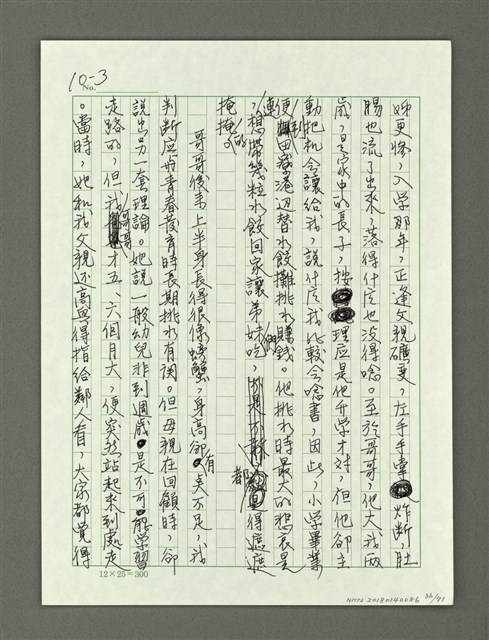 10-3
No.
姊更慘，入學那年，正逢父親礦變，左手手掌炸斷，肚
腸也流了出來，落得什庅也没得唸。至於哥哥，他大我兩
歲，是家中的長子，按理应是他升學才対，但他卻主
動把机会讓給我，說什庅我比較会唸書，因此，小學畢業
便到田寮港辺替水餃攤挑水賺錢。他挑水時最大的悲哀是
，連想帶幾粒水餃回家讓弟妹們吃，都得遮遮
掩掩的。
哥哥後來上半身長得很像螃蟹，身高卻有点不足，我
判断应與青春發育時長期挑水有関。但母親在回顧時，卻
說出另一套理論。她說一般幼兒非到週歲是不可能學習
走路的，但我哥哥才五、六個月大，便突然站起來到處走
。當時，她和我父親还高興得指給鄰人看，大家都覺得
12×25=300
NMTL 20180140086 36/71